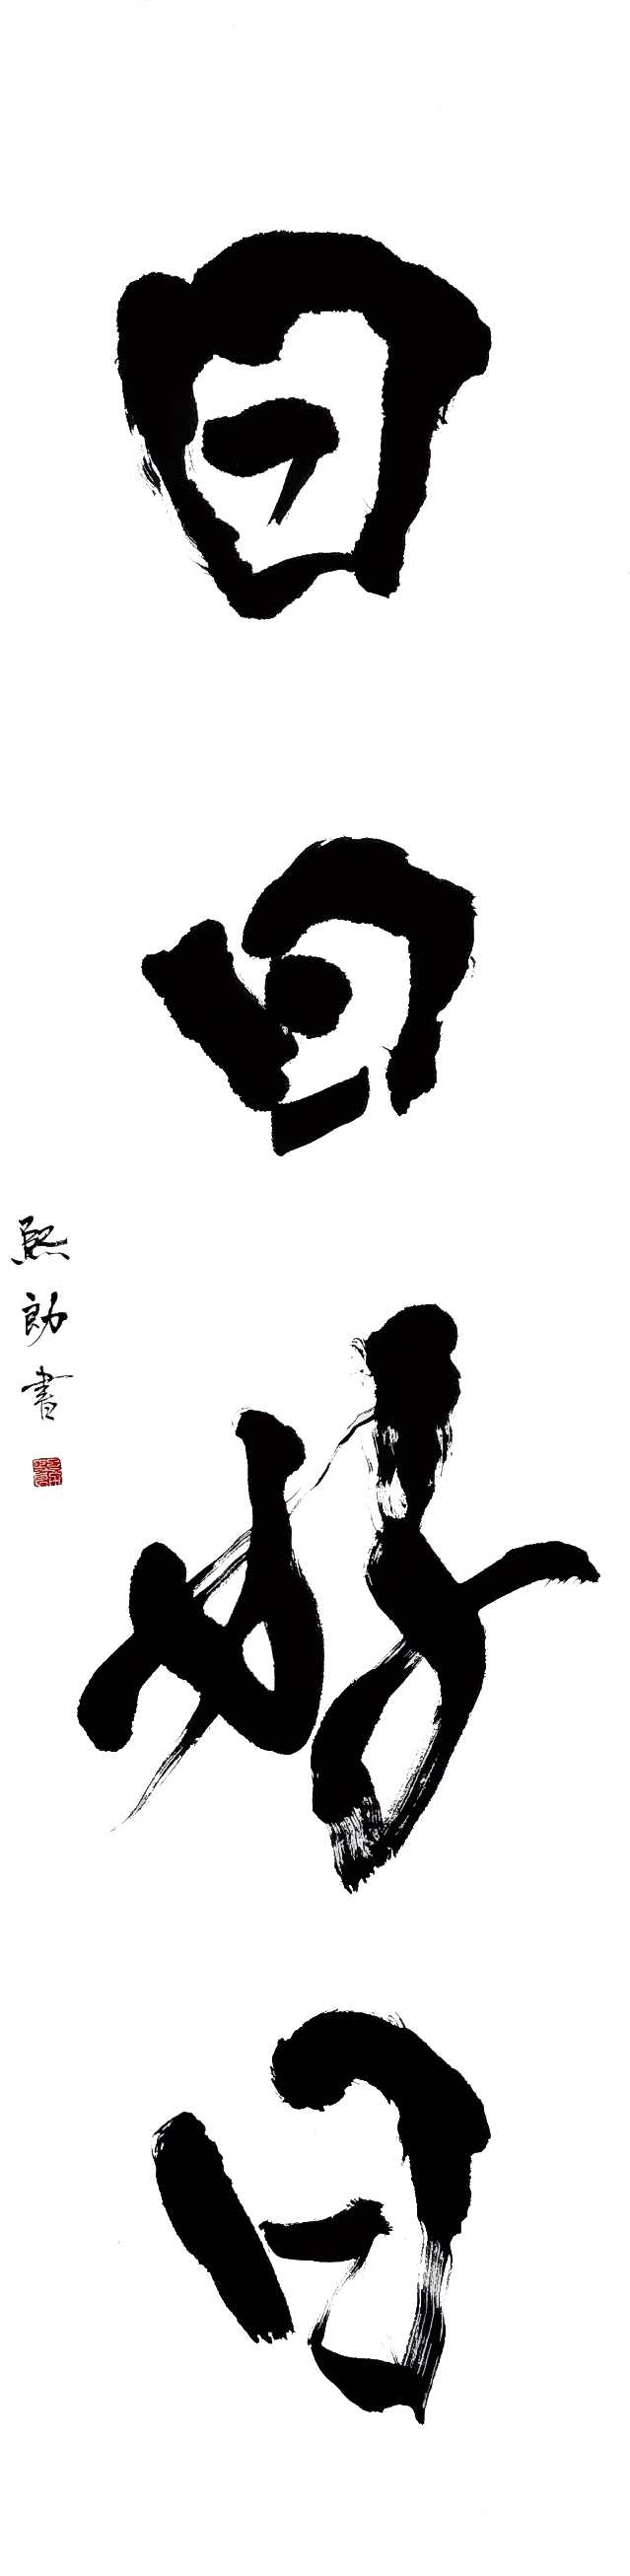 日日好日
熙勍書